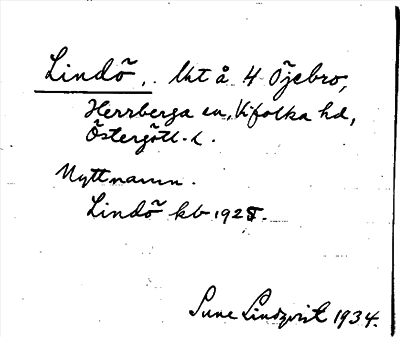 Lindö, lht å 4 Öjebro,
Herrberga sn, Vifolka hd,
Östergötl. l.
Nyttnamn.
Lindö kb 1925.
Sune Lindqvist 1934.